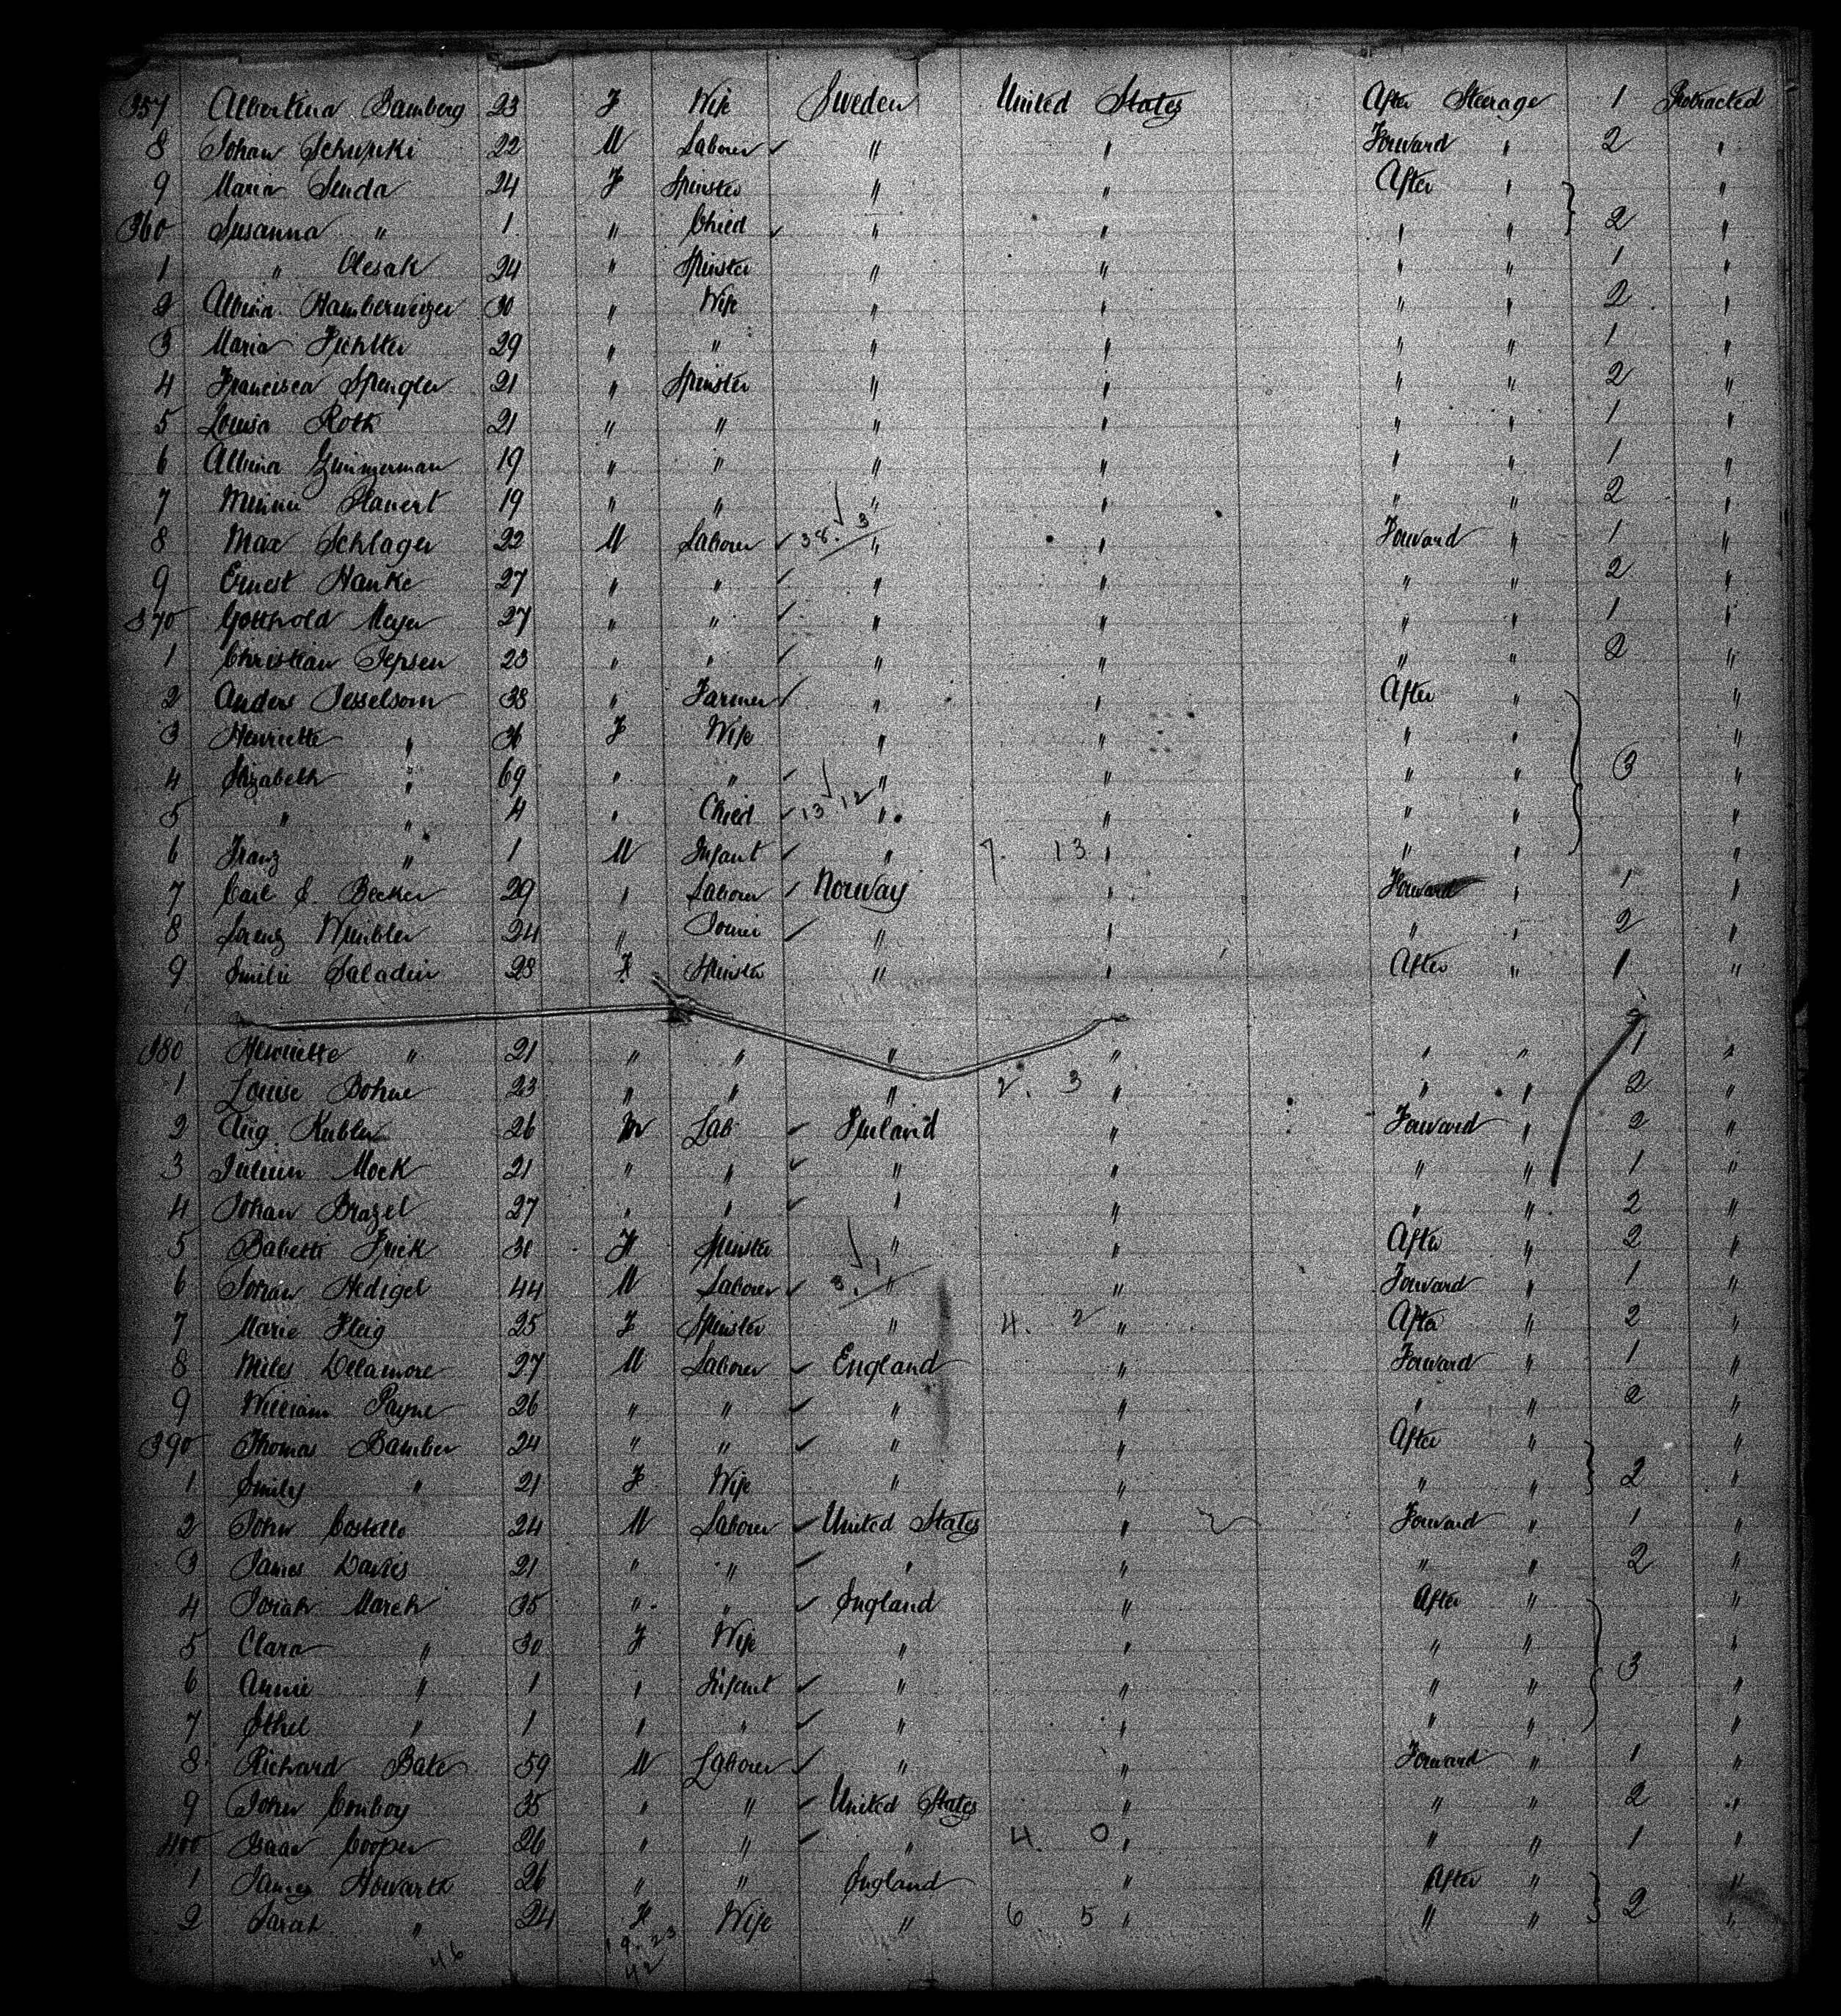 357 Albertina Bamberg 23 F Wife Sweden United States After Steerage 1 Protracted
8 Johan Schupki 22 M Laborer ✓ " " Forward " 2 "
9 Maria Senda 24 F Spinster " " After " "
360 Susanna " 1 " Child ✓ " " " " 2 "
1 " Olesak 24 " Spinster " " " " 1 "
2 Albina Hamberweizer 30 " Wife " " " " 2 "
3 Maria " " " " " " 1 "
4 Francisca Spengler 21 " Spinster " " " " 2 "
5 Louisa Roth 21 " " " " " " 1 "
6 Albina Zimmerman 19 " " " " " " 1 "
7 Minna 19 " " " " " " 2 "
8 Max Schlager 22 M Laborer ✓ 38. 3 " " Forward " 1 "
9 Ernest Hanke 27 " " ✓ " " " " 2 "
370 Gotthold Meyer 27 " " ✓ " " " " 1 "
1 Christian Jepsen 23 " " ✓ " " " " 2 "
2 Anders Jesselsom 38 " Farmer ✓ " " After " "
3 Henriette " F Wife " " " " "
4 Elizabeth " 69 " " ✓ " " " " 3 "
5 " " 4 " Child ✓ 13 12 " " " " "
6 Franz " 1 M Infant ✓ " 7. 13 " " " "
7 Carl E. Becker 29 " Laborer ✓ Norway " Forward " 1 "
8 Lorenz Winkler 24 " Joiner ✓ " " " " 2 "
9 Emilie Saladin 28 F Spinster " " After " 1 "
380 Henriette " 21 " " " " " " 1 "
1 Louise Bohne 23 " " " 2. 3 " " " 2 "
2 Aug. Kubler 26 M Lab ✓ Finland " Forward " 2 "
3 Julian Mock 21 " " ✓ " " " " 1 "
4 Johan Brazel 27 " " ✓ " " " " 2 "
5 Babetti Frick 30 F Spinster " " After " 2 "
6 Johan Hedigel 44 M Laborer ✓ 3. 1 " " Forward " 1 "
7 Marie Fleig 25 F Spinster " 4. 2 " After " 2 "
8 Miles Delamore 27 M Laborer ✓ England " Forward " 1 "
9 William Payne 26 " " ✓ " " " " 2 "
390 Thomas Bamber 24 " " ✓ " " After " "
1 Emily " 21 F Wife " " " " 2 "
2 John Costello 24 M Laborer ✓ United States " Forward " 1 "
3 James Davies 21 " " ✓ " " " " 2 "
4 Josiah March 35 " " ✓ England " After " "
5 Clara " 30 F Wife " " " " 3 "
6 Annie " 1 " Infant ✓ " " " " "
7 Ethel " 1 " " ✓ " " " " "
8 Richard Bate 59 M Laborer ✓ " " Forward " 1 "
9 John Conboy 35 " " ✓ United States " " " 2 "
400 Isaac Cooper 26 " " ✓ " 4. 0 " " " 1 "
1 James Howarth 26 " " England " After " "
2 Sarah " 24 F Wife " 6. 5 " " " 2 "
46 19. 23
42